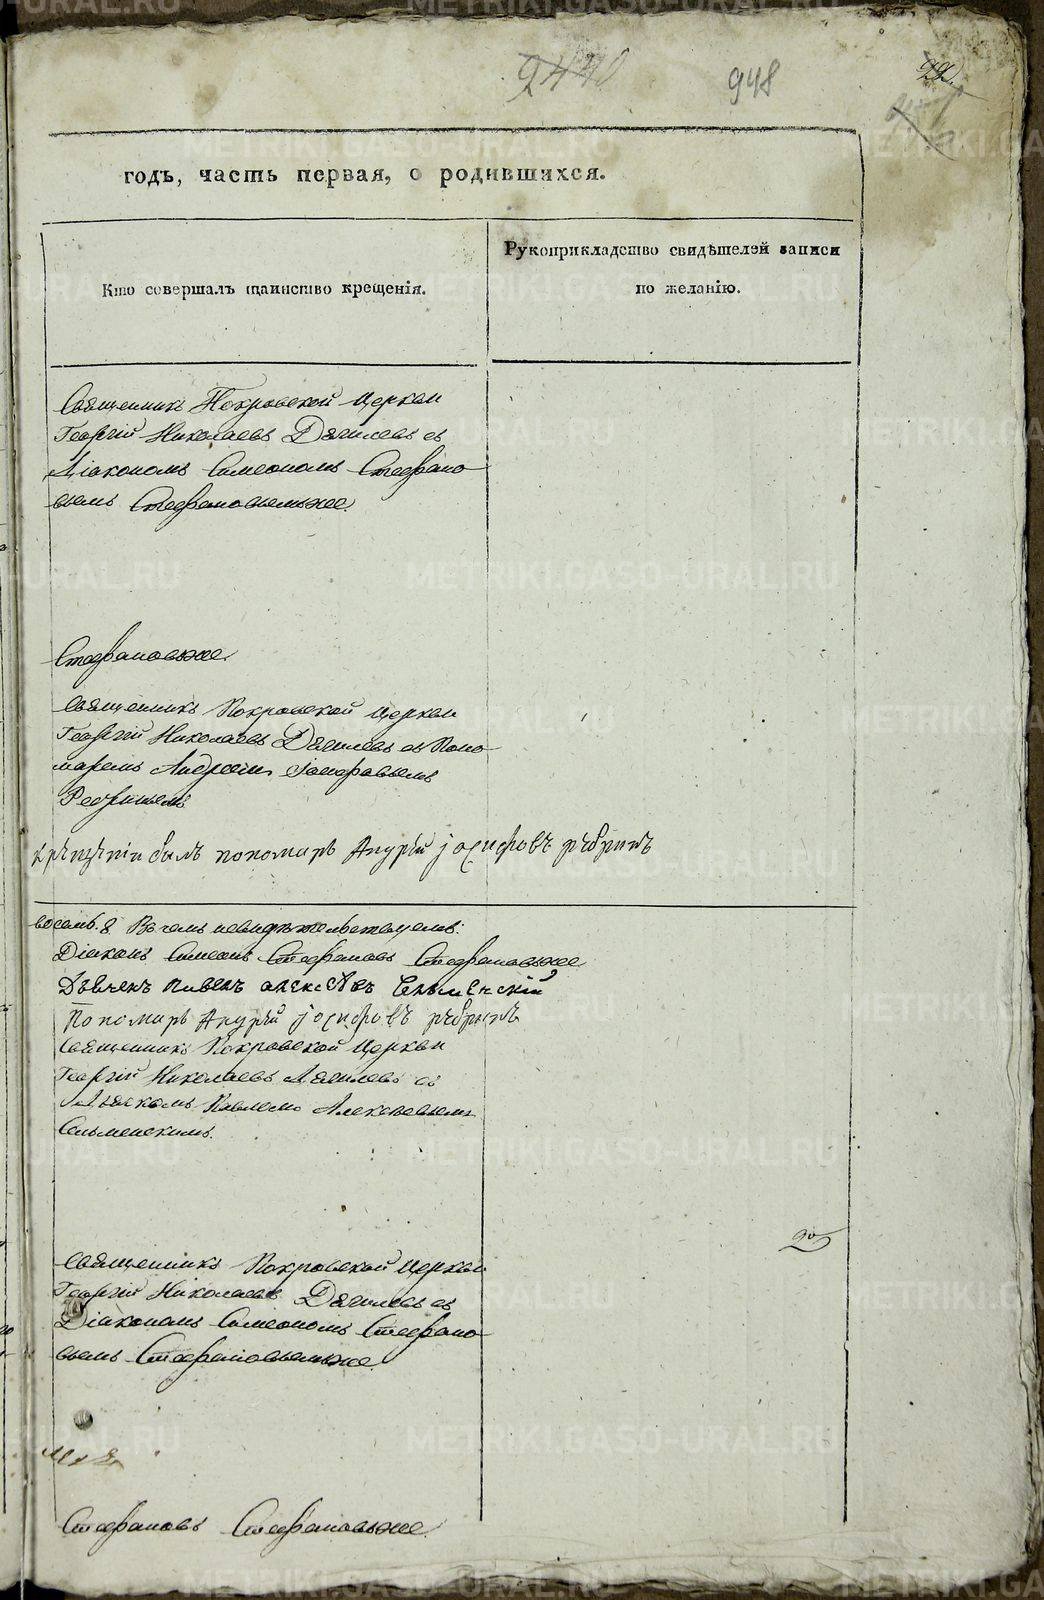 948
22.
годъ, часть первая, о родившихся.
Кто совершалъ таинство крещенія.
Рукоприкладство свидѣтелей записи
по желанію.
Священникъ Покровской церкви
Георгій Николаевъ Дягилевъ съ
Діакономъ Симеономъ Стефано
вымъ Стефановымъ же.
Стефановъ же
Священникъ Покровской церкви
Георгій Николаевъ Дягилевъ съ Поно
маремъ Андреемъ Іосифовымъ
при крещеніи былъ пономарь Андрей Іосифовъ
восемь. 8 Въ чемъ и свидѣтельствуемъ:
Діаконъ Симеонъ Стефановъ Стефановъ же
Дьячекъ Павелъ Алексѣевъ Сельменскій
Пономарь Андрей Іосифовъ
Священникъ Покровской церкви
Георгій Николаевъ Дягилевъ съ
Дьячкомъ Павломъ Алексѣевымъ
Сельменскимъ.
Священникъ Покровской церкви
Георгій Николаевъ Дягилевъ съ
Діакономъ Симеономъ Стефано
вымъ Стефановымъ же
Стефановъ Стефановъ же
METRIKI.GASO-URAL.RU